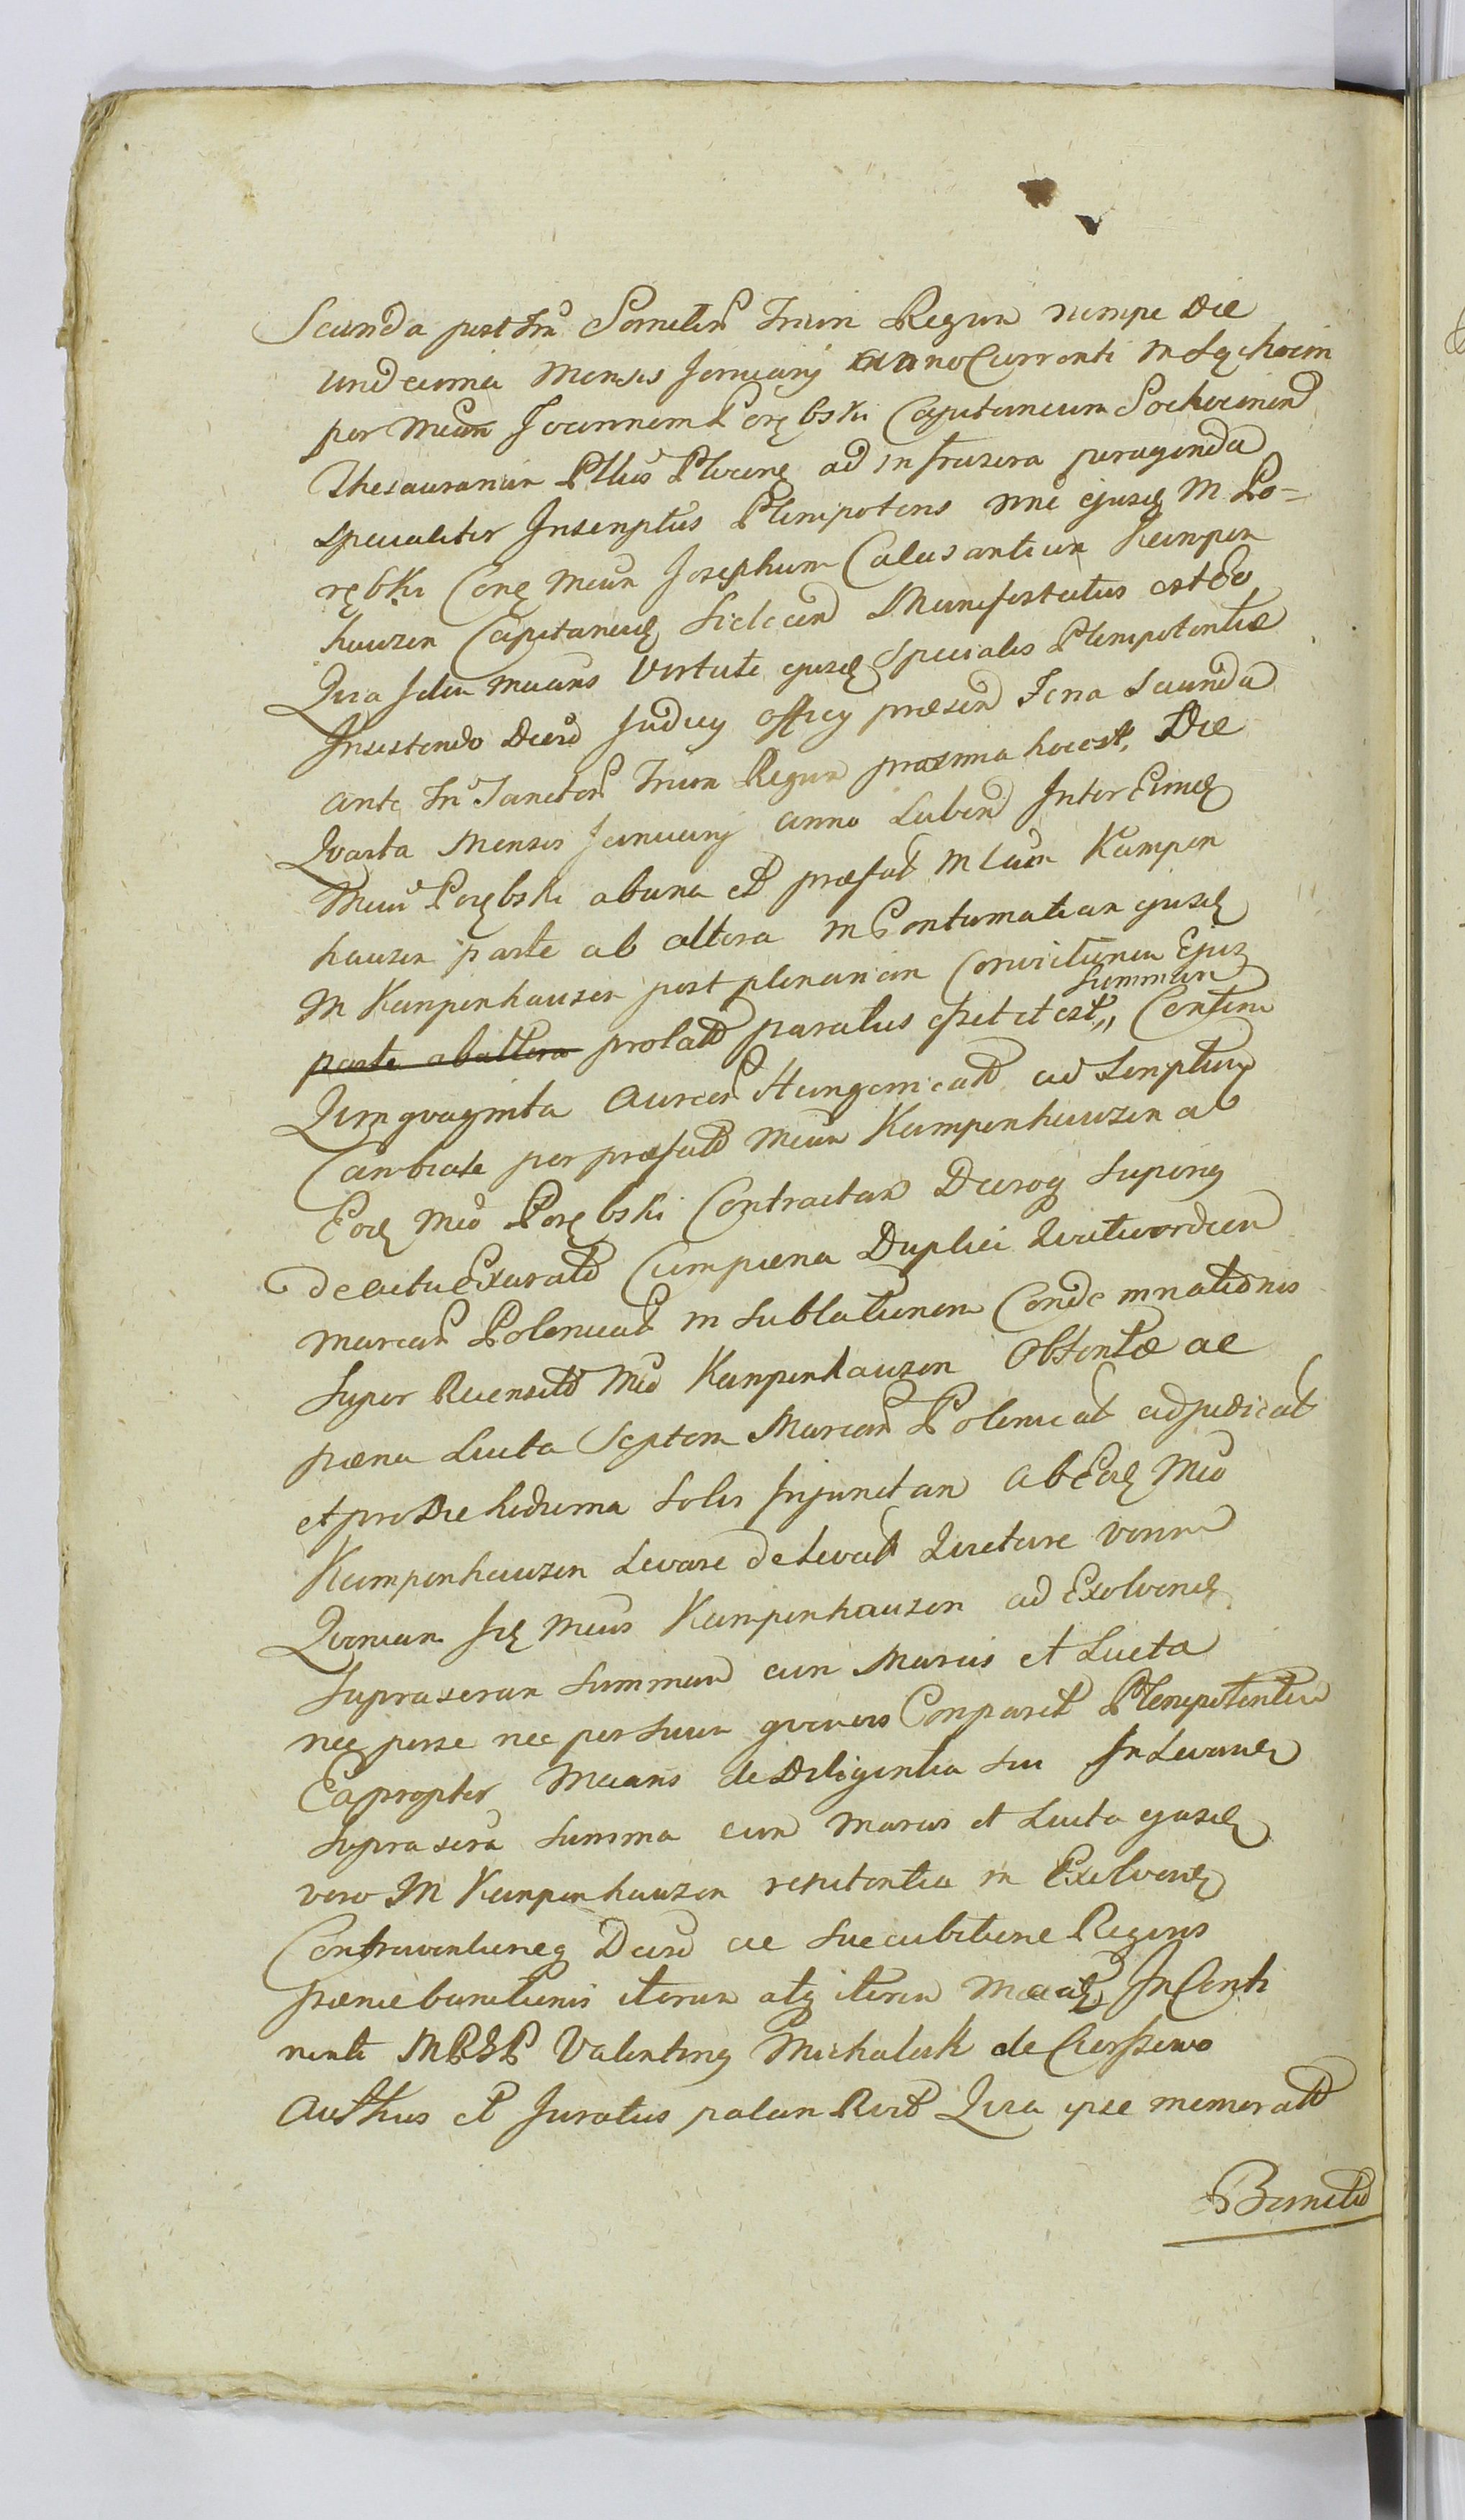 Scunda post Fm̄ Sanctm̄ Trium Regum nempe Die
undecima Mensis Januarij anno Currenti in Sęchocin
per Mcum Joannem Porębski Capitaneum Sochocinen̄
Thesaurarium Pllūs Plocens ad infrascra peragenda
specialiter Inscriptus Plenipotens nne ejusd M Po=
rębski Cong Mcum Josephum Calasantium Kampen
hauzen Capitaneū Sielcen̄ Manifestatus est Eo
Quia Idem Mcans Virtute ejusd Specialis Plenipotentiæ
Insistendo Decō Judicij Officij præsen̄ Feria Scunda
ante Fm̄ Sanctor̄ Trium Regum proxima hoc est, Die
Qvarta Mensis Januarij anno Laben̄ Inter Eund
Mcum̄ Porębski ab una et præfat Mlcum Kampen
hauzen parte ab altera in Contumatiam ejusd
M Kampenhauzen post plenariam Convictionem Ejus
Summam
parte ab altera prolat paratus esset et est,, Centum
Quinqvaginta aureor̄ Hungaricat ad Scriptum
Cambiale per præfat Mcum Kampenhauzen ab
Eod Mcō Porębski Contractam Decroq Superinq
de actu Exarat Cum pæna Duplici Qvatuordecem
marcar̄ Polonicat in Sublationem Condemnationis
super Recensito Mcō Kampenhauzen Obtentæ ac
pæna Lucta Septem Marcar̄ Polonicat adjudicat
et pro Die hodierna Solis Injunctam ab Eod Mcō
Kampenhauzen Levare de Levat Quietare Venit
Qvoniam Id Mcus Kampenhauzen ad Exolvend
supra scram Summam cum Marcis et Lucta
nec per se nec per suum qvemvis Comparet Plenipotentem
Eapropter Mcans de Diligentia sui In Levand
supra scra Summa cum Marcis et Lucta ejusd
vero M Kampenhauzen renitentia in Exolvend
Contraventioneq Decri ac Succubitione Rigoris
pænæ banitionis iterum atq iterum Mcatq In Conti
nenti MPSP Valentinq Michalak de Ciersszewo
authus et Juratus palam Recit Quia ipse memorat
Bannito